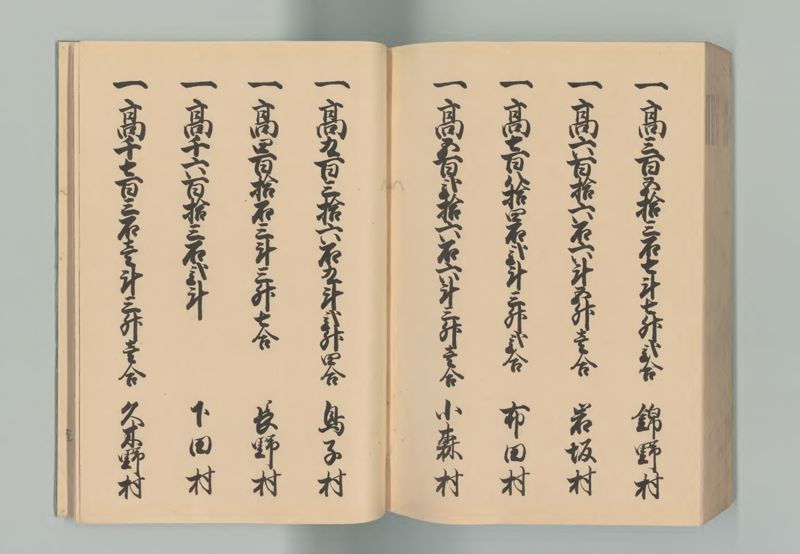 一高三百五拾三石七斗七升弐合 錦野村
一高六百拾六石六斗五升壱合 岩坂村
一高七百拾四石弐斗三升弐合 布田村
一高五百弐拾六石六斗三升壱合 小森村
一高九百三拾六石九斗弐升四合 鳥子村
一高四百拾石三斗三升七合 長野村
一高千六百拾三石弐斗 下田村
一高千七百三石壱斗三升壱合 久木野村